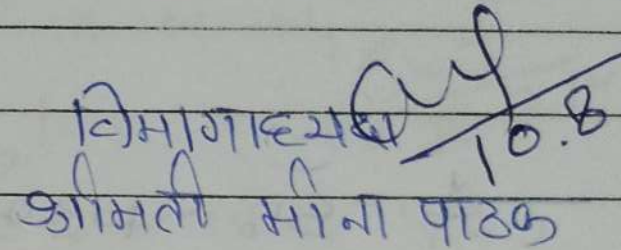 विभागाध्यक्ष 10.8
श्रीमती मीना पाठक